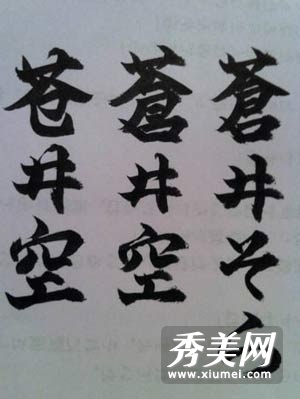 蒼井そら
蒼井空
苍井空
秀美网
www.xiumei.com